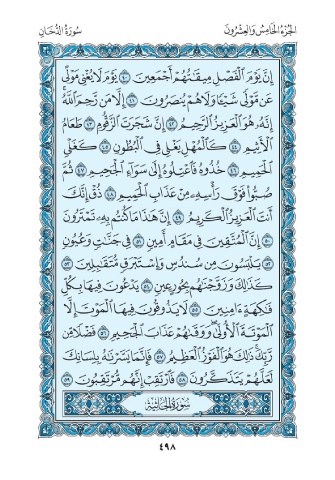 سُورَةُ الدُّخَانِ الجُزْءُ الخَامِسُ وَالعِشْرُونَ
إِنَّ يَوْمَ ٱلْفَصْلِ مِيقَٰتُهُمْ أَجْمَعِينَ ٤٠ يَوْمَ لَا يُغْنِى مَوْلًى
عَن مَّوْلًى شَيْـًٔا وَلَا هُمْ يُنصَرُونَ ٤١ إِلَّا مَن رَّحِمَ ٱللَّهُ ۚ
إِنَّهُۥ هُوَ ٱلْعَزِيزُ ٱلرَّحِيمُ ٤٢ إِنَّ شَجَرَتَ ٱلزَّقُّومِ ٤٣ طَعَامُ
ٱلْأَثِيمِ ٤٤ كَٱلْمُهْلِ يَغْلِى فِى ٱلْبُطُونِ ٤٥ كَغَلْىِ
ٱلْحَمِيمِ ٤٦ خُذُوهُ فَٱعْتِلُوهُ إِلَىٰ سَوَآءِ ٱلْجَحِيمِ ٤٧ ثُمَّ
صُبُّوا۟ فَوْقَ رَأْسِهِۦ مِنْ عَذَابِ ٱلْحَمِيمِ ٤٨ ذُقْ إِنَّكَ
أَنتَ ٱلْعَزِيزُ ٱلْكَرِيمُ ٤٩ إِنَّ هَٰذَا مَا كُنتُم بِهِۦ تَمْتَرُونَ
٥٠ إِنَّ ٱلْمُتَّقِينَ فِى مَقَامٍ أَمِينٍ ٥١ فِى جَنَّٰتٍ وَعُيُونٍ
٥٢ يَلْبَسُونَ مِن سُندُسٍ وَإِسْتَبْرَقٍ مُّتَقَٰبِلِينَ ٥٣
كَذَٰلِكَ وَزَوَّجْنَٰهُم بِحُورٍ عِينٍ ٥٤ يَدْعُونَ فِيهَا بِكُلِّ
فَٰكِهَةٍ ءَامِنِينَ ٥٥ لَا يَذُوقُونَ فِيهَا ٱلْمَوْتَ إِلَّا
ٱلْمَوْتَةَ ٱلْأُولَىٰ ۖ وَوَقَىٰهُمْ عَذَابَ ٱلْجَحِيمِ ٥٦ فَضْلًا مِّن
رَّبِّكَ ۚ ذَٰلِكَ هُوَ ٱلْفَوْزُ ٱلْعَظِيمُ ٥٧ فَإِنَّمَا يَسَّرْنَٰهُ بِلِسَانِكَ
لَعَلَّهُمْ يَتَذَكَّرُونَ ٥٨ فَٱرْتَقِبْ إِنَّهُم مُّرْتَقِبُونَ ٥٩
سُورَةُ الجَاثِيَةِ
٤٩٨